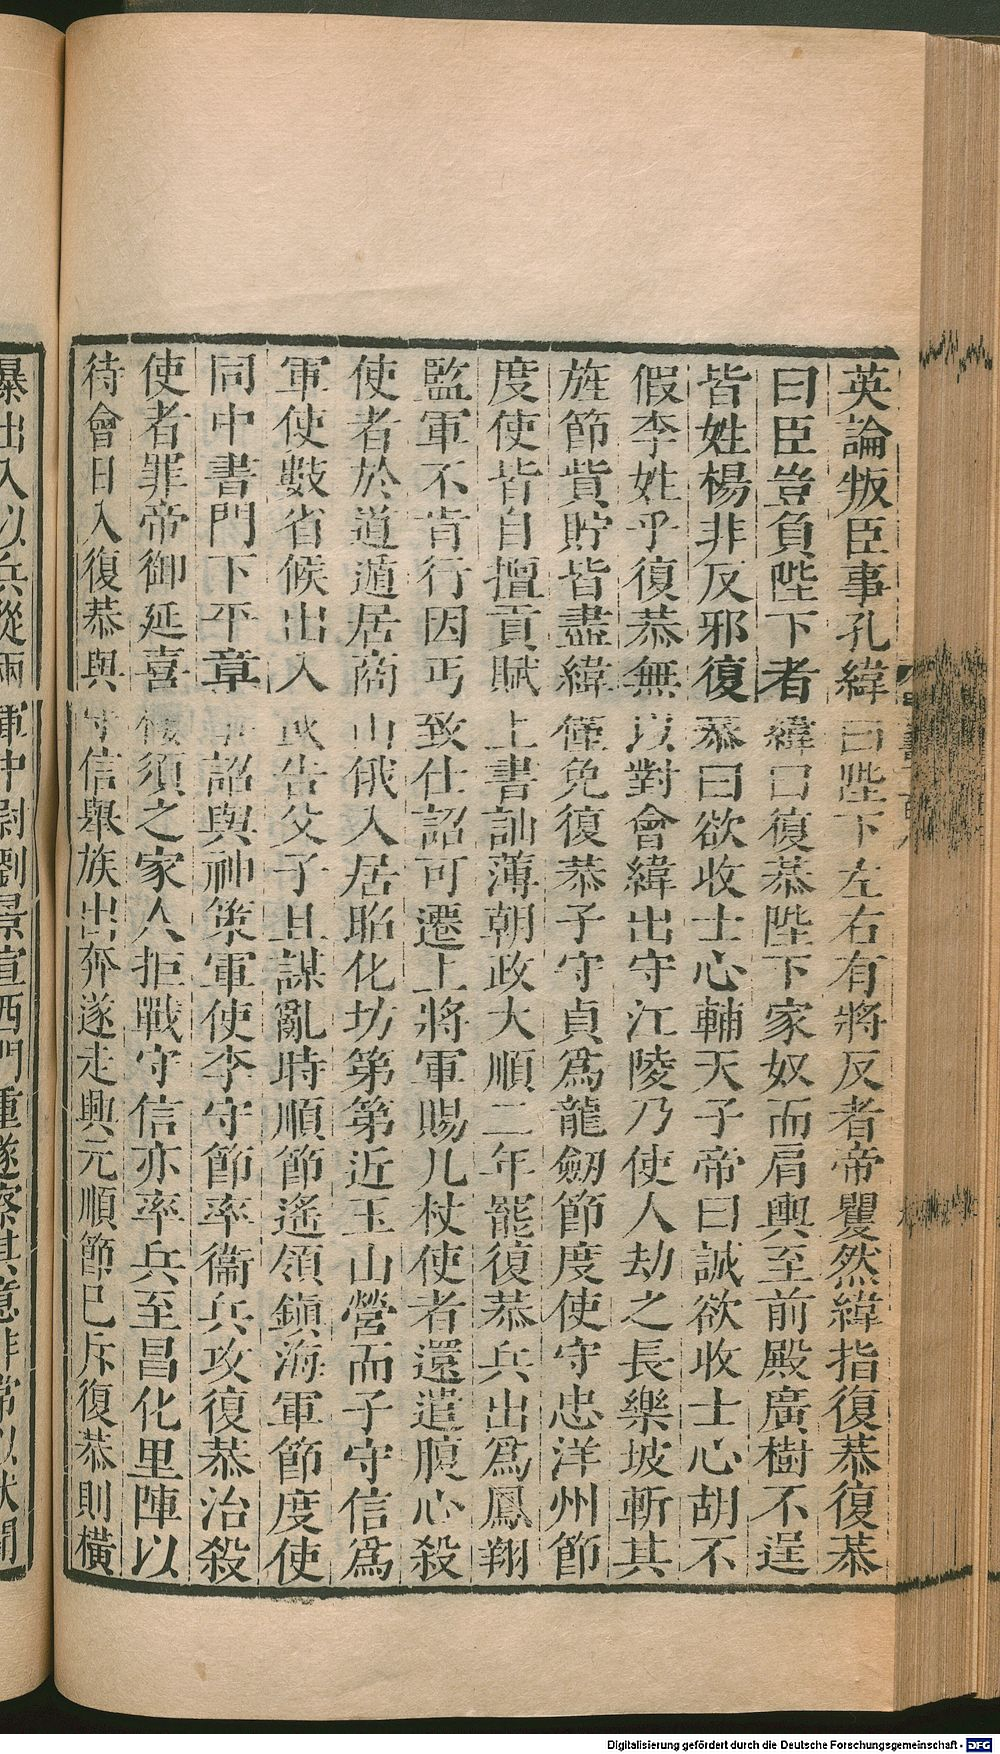 英論叛臣事孔緯曰陛下左右有將反者帝矍然緯指復恭復恭
曰臣豈負陛下者緯曰復恭陛下家奴而肩輿至前殿廣樹不逞
皆姓楊非反邪復恭曰欲收士心輔天子帝曰誠欲收士心胡不
假李姓乎復恭無以對會緯出守江陵乃使人劫之長樂坡斬其
旌節貲貯皆盡緯僅免復恭子守貞爲龍劒節度使守忠洋州節
度使皆自擅貢賦上書訕薄朝政大順二年罷復恭兵出爲鳳翔
監軍不肯行因丐致仕詔可遷上將軍賜几杖使者還遣腹心殺
使者於道遁居商山俄入居昭化坊第第近玉山營而子守信爲
軍使數省候出入或告父子且謀亂時順節遙領鎭海軍節度使
同中書門下平章事詔與神策軍使李守節率衞兵攻復恭治殺
使者罪帝御延喜樓須之家人拒戰守信亦率兵至昌化里陣以
待會日入復恭與守信舉族出奔遂走興元順節已斥復恭則橫
暴出入以兵從兩軍中尉劉景宣西門重遂察其意非常以狀聞
Digitalisierung gefördert durch die Deutsche Forschungsgemeinschaft - DFG